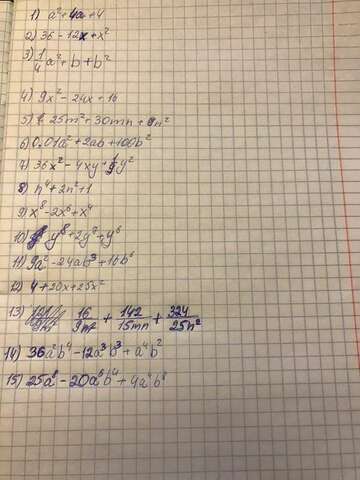 1) a² + 4a + 4
2) 36 - 12x + x²
3) 1/4 a² + b + b²
4) 9x² - 24x + 16
5) 25m² + 30mn + 9n²
6) 0.01a² + 2ab + 100b²
7) 36x² - 4xy + 1/9 y²
8) n⁴ + 2n² + 1
9) x⁸ - 2x⁶ + x⁴
10) y⁸ + 2y⁷ + y⁶
11) 9a² - 24ab³ + 16b⁶
12) 4 + 20x + 25x²
13) 16/9m² + 142/15mn + 324/25n²
14) 36a²b⁴ - 12a³b³ + a⁴b²
15) 25a⁸ - 20a⁶b⁴ + 4a⁴b⁸